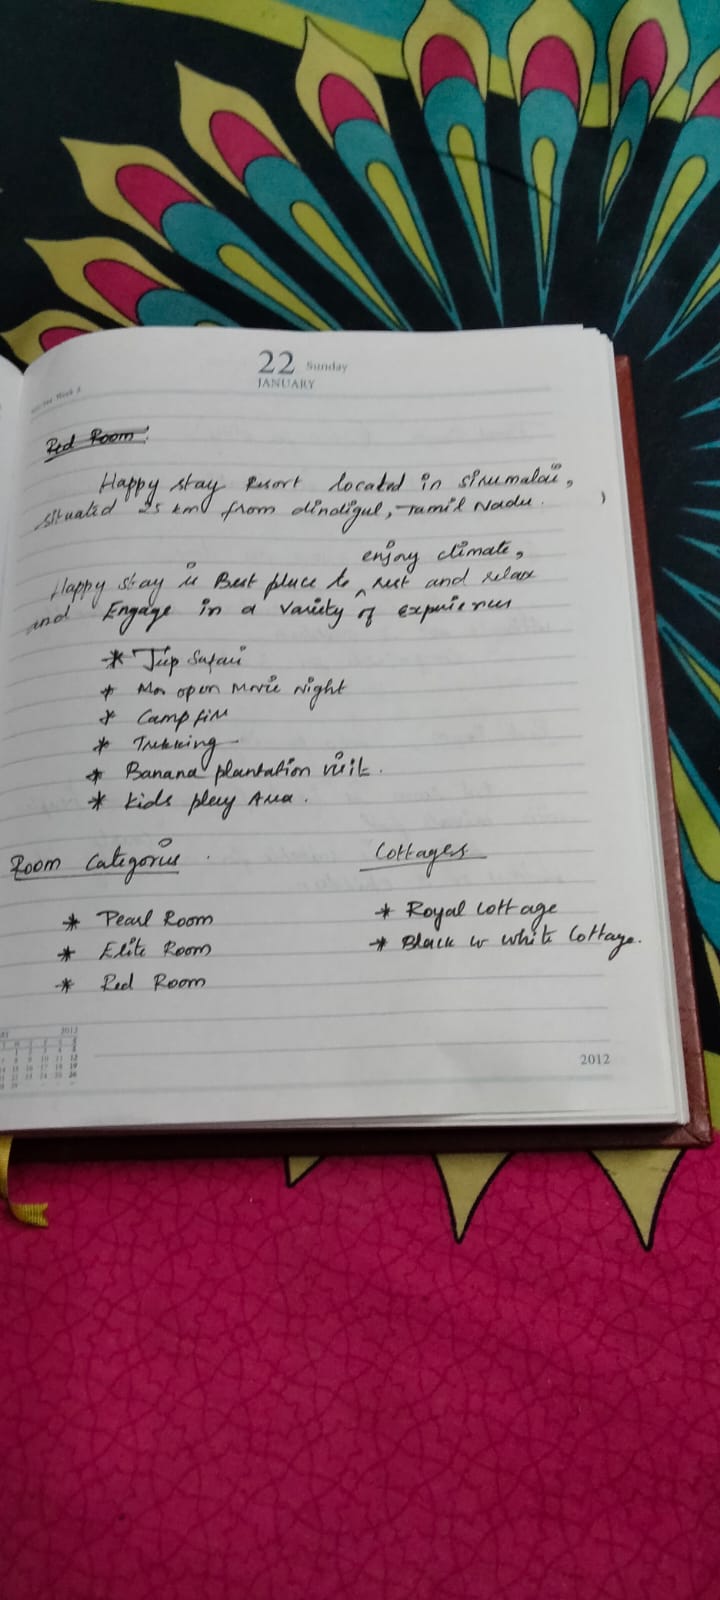 22 Sunday
JANUARY
Red Room:
Happy stay Resort located in sirumalai,
situated 25 km from dindigul, Tamil Nadu.
enjoy climate,
Happy stay is Best place to ^ rest and relax
and Engage in a variety of experiences
* Jeep Safari
* open Movie night
* Camp fire
* Trekking
* Banana plantation visit.
* Kids play Area.
Room Categories
* Pearl Room
* Elite Room
* Red Room
Cottages
* Royal Cottage
* Black & white Cottage.
2012